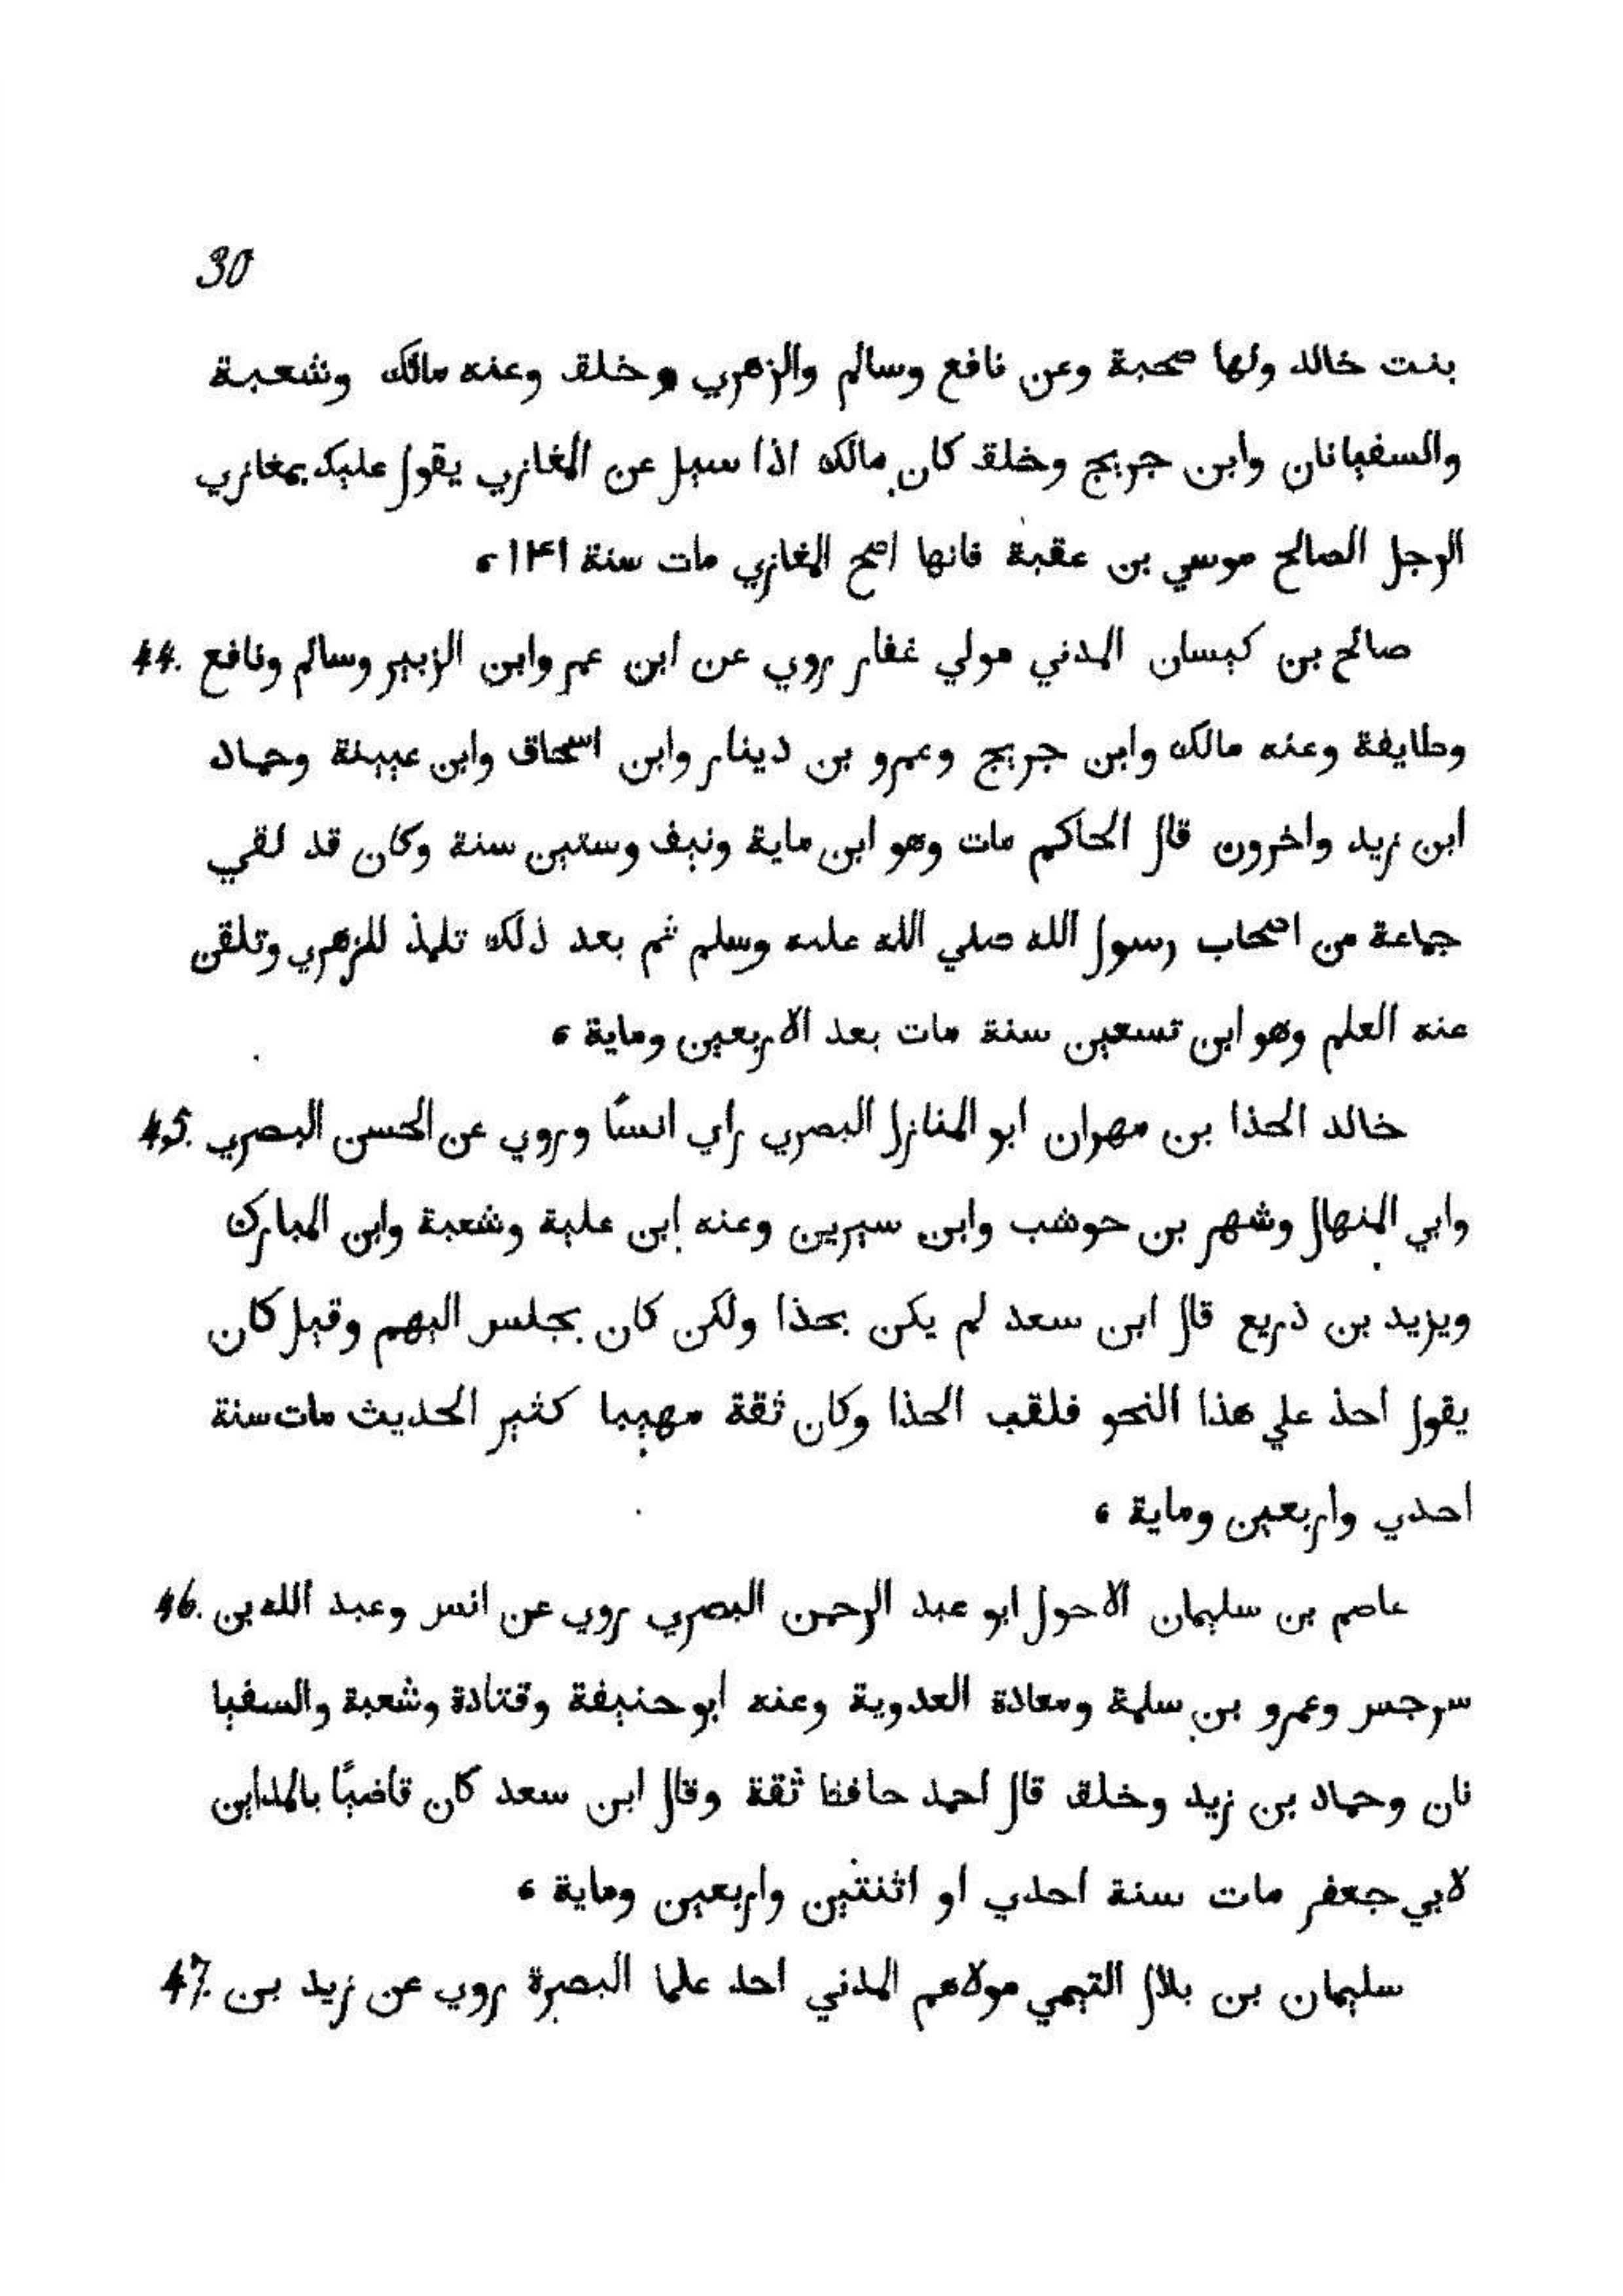 30
بنت خالد ولها صحبة وعن نافع وسالم والزهري وخلق وعنه مالك وشعبة
والسفيانان وابن جريج وخلق كان مالك اذا سيل عن المغازي يقول عليك بمغازي
الرجل الصالح موسي بن عقبة فانها اصح المغازي مات سنة ۱۴۱ ،
44. صالح بن كيسان المدني مولي غفار روي عن ابن عمر وابن الزبير وسالم ونافع
وطايفة وعنه مالك وابن جريج وعمرو بن دينار وابن اسحاق وابن عيينة وحماد
ابن زيد واخرون قال الحاكم مات وهو ابن ماية ونيف وستين سنة وكان قد لقي
جماعة من اصحاب رسول الله صلي الله عليه وسلم ثم بعد ذلك تلمذ للزهري وتلقن
عنه العلم وهو ابن تسعين سنة مات بعد الاربعين وماية ،
45. خالد الحذا بن مهران ابو المنازل البصري راي انسًا وروي عن الحسن البصري
وابي المنهال وشهر بن حوشب وابن سيرين وعنه ابن علية وشعبة وابن المبارك
ويزيد بن ذريع قال ابن سعد لم يكن بحذا ولكن كان يجلس اليهم وقيل كان
يقول احذ علي هذا النحو فلقب الحذا وكان ثقة مهيبا كثير الحديث مات سنة
احدي واربعين وماية ،
46. عاصم بن سليمان الاحول ابو عبد الرحمن البصري روي عن انس وعبد الله بن
سرجس وعمرو بن سلمة ومعاذة العدوية وعنه ابو حنيفة وقتادة وشعبة والسفيا
نان وحماد بن زيد وخلق قال احمد حافظ ثقة وقال ابن سعد كان قاضيًا بالمداين
لابي جعفر مات سنة احدي او اثنتين واربعين وماية ،
47. سليمان بن بلال التيمي مولاهم المدني احد علما البصرة روي عن زيد بن